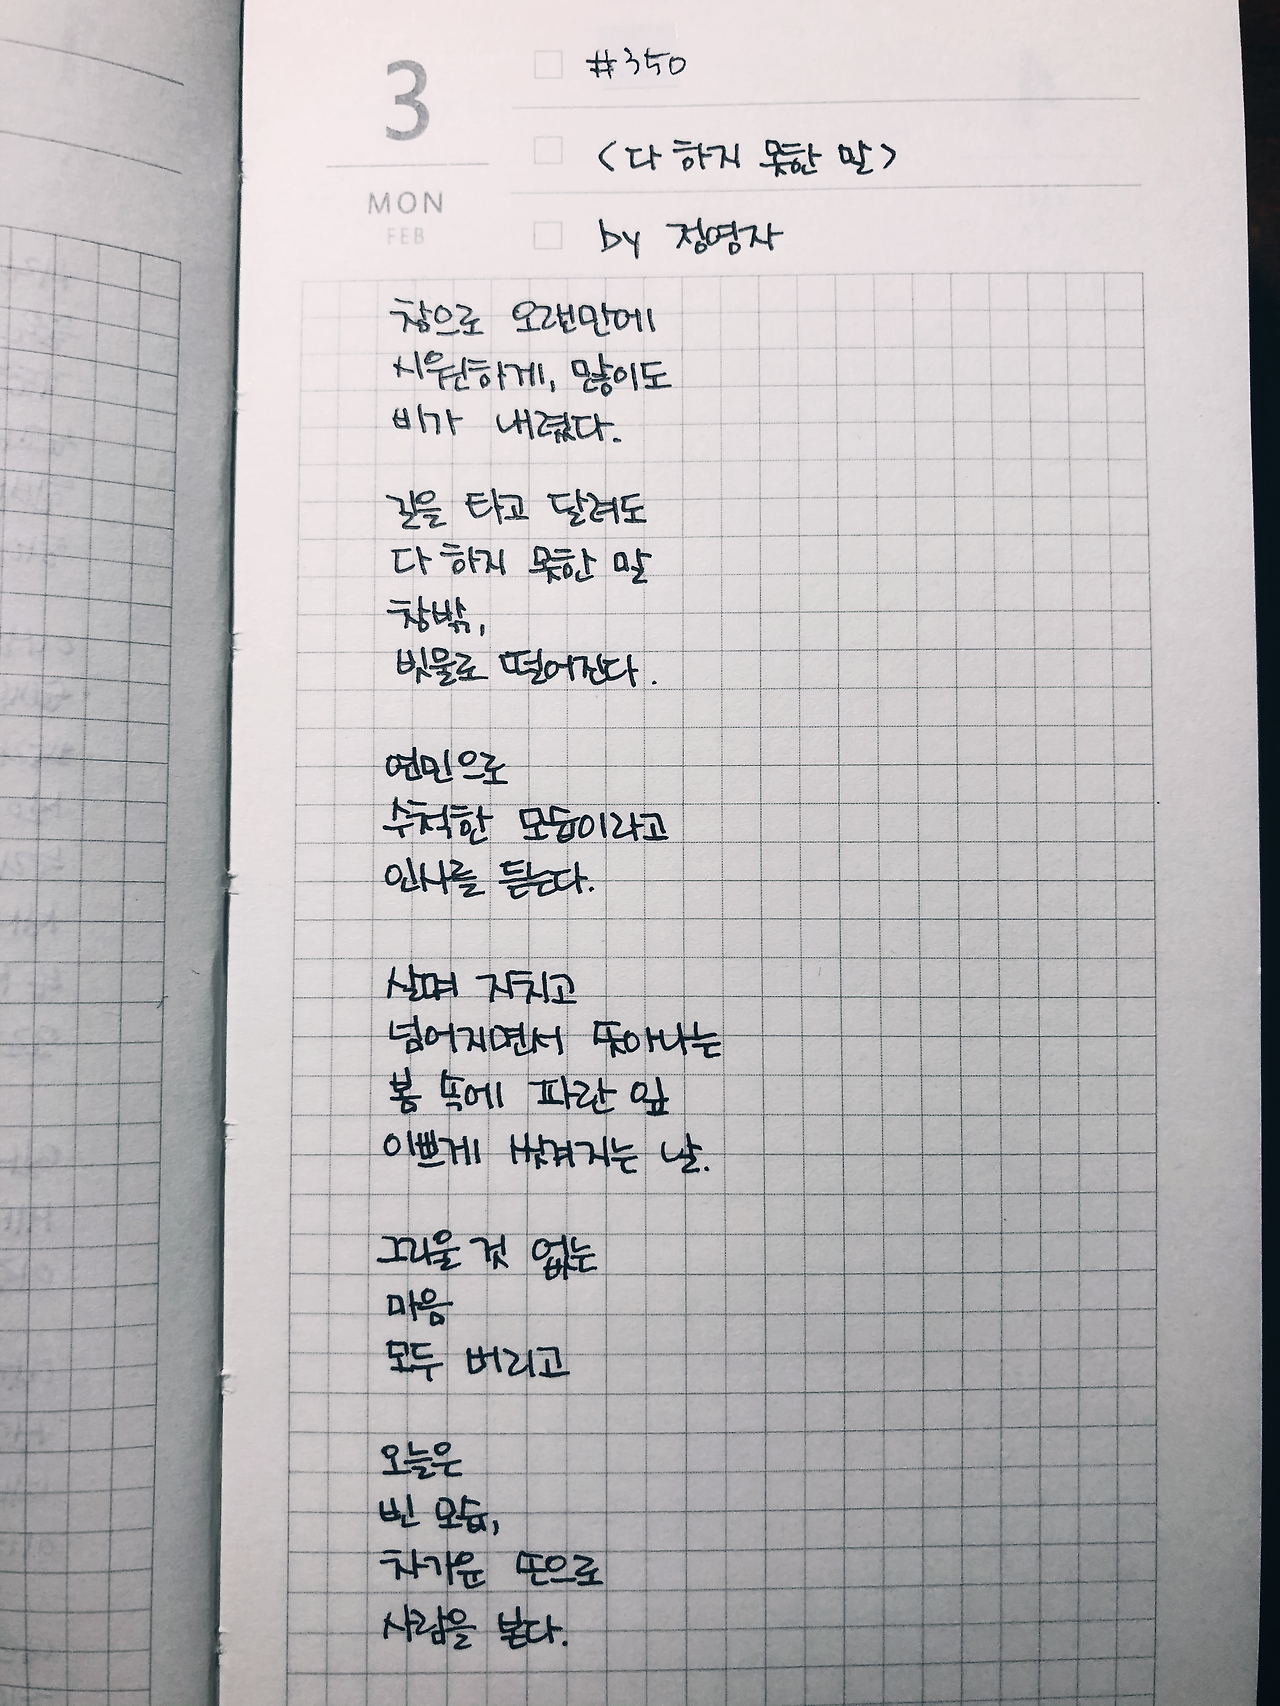 3
MON
FEB
#350
<다 하지 못한 말>
by 정영자
참으로 오랜만에
시원하게, 많이도
비가 내렸다.
길을 타고 달려도
다 하지 못한 말
창밖,
빗물로 떨어진다.
연민으로
수척한 모습이라고
인사를 듣는다.
살며 지치고
넘어지면서 돋아나는
봄 속에 파란 잎
이쁘게 벗겨지는 날.
그리울 것 없는
마음
모두 버리고
오늘은
빈 모습,
차가운 손으로
사람을 본다.